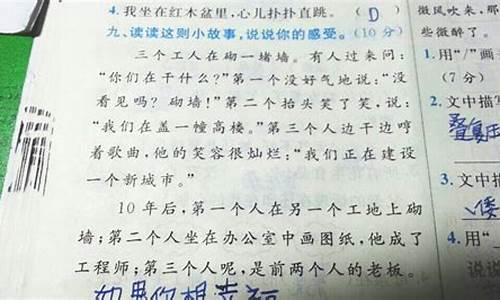 4.我坐在红木盆里,心儿扑扑直跳。( D )
九、读读这则小故事,说说你的感受。(10分)
三个工人在砌一堵墙。有人过来问:
“你们在干什么?”第一个没好气地说:“没
看见吗? 砌墙!”第二个抬头笑了笑,说:
“我们在盖一幢高楼。”第三个人边干边哼
着歌曲,他的笑容很灿烂:“我们正在建设
一个新城市。”
10年后,第一个人在另一个工地上砌
墙;第二个人坐在办公室中画图纸,他成了
工程师;第三个人呢,是前两个人的老板。
如果你想幸福
微风吹来,那
些微醉了。
1.用“/”画
(7分)
2.文中描写
叠复用
3.文中描
4.用“
说说